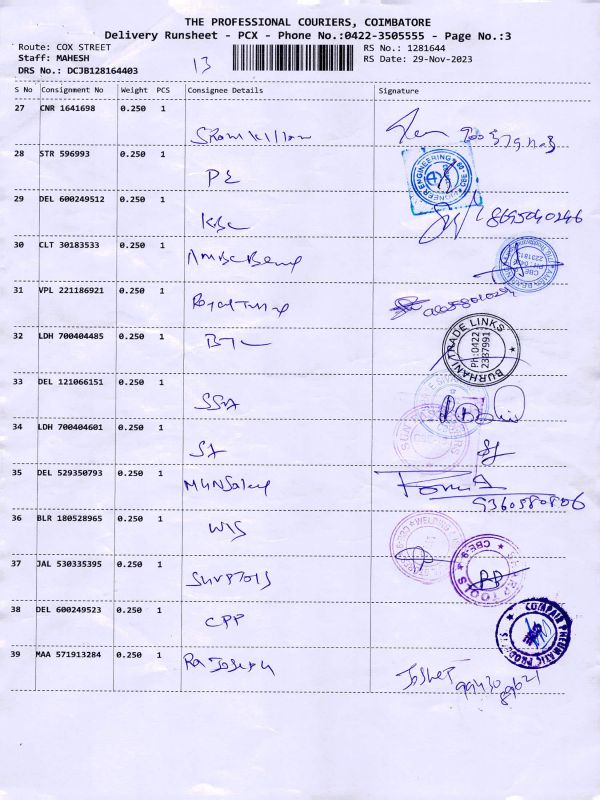 THE PROFESSIONAL COURIERS, COIMBATORE
Delivery Runsheet - PCX - Phone No.:0422-3505555 - Page No.:3
Route: COX STREET RS No.: 1281644
Staff: MAHESH RS Date: 29-Nov-2023
DRS No.: DCJB128164403 13
S No Consignment No Weight PCS Consignee Details Signature
27 CNR 1641698 0.250 1
28 STR 596993 0.250 1
PE
29 DEL 600249512 0.250 1
KBC 8695040246
30 CLT 30183533 0.250 1
31 VPL 221186921 0.250 1
32 LDH 700404485 0.250 1
BTL
BURHANI TRADE LINKS
PH:0422
2387991
33 DEL 121066151 0.250 1
SSA
34 LDH 700404601 0.250 1
SA
35 DEL 529350793 0.250 1
9360580806
36 BLR 180528965 0.250 1
WIS
WELDING
37 JAL 530335395 0.250 1
CBE-9
TOOLS
38 DEL 600249523 0.250 1
CPP
39 MAA 571913284 0.250 1
Ra Joseph
99430
89621